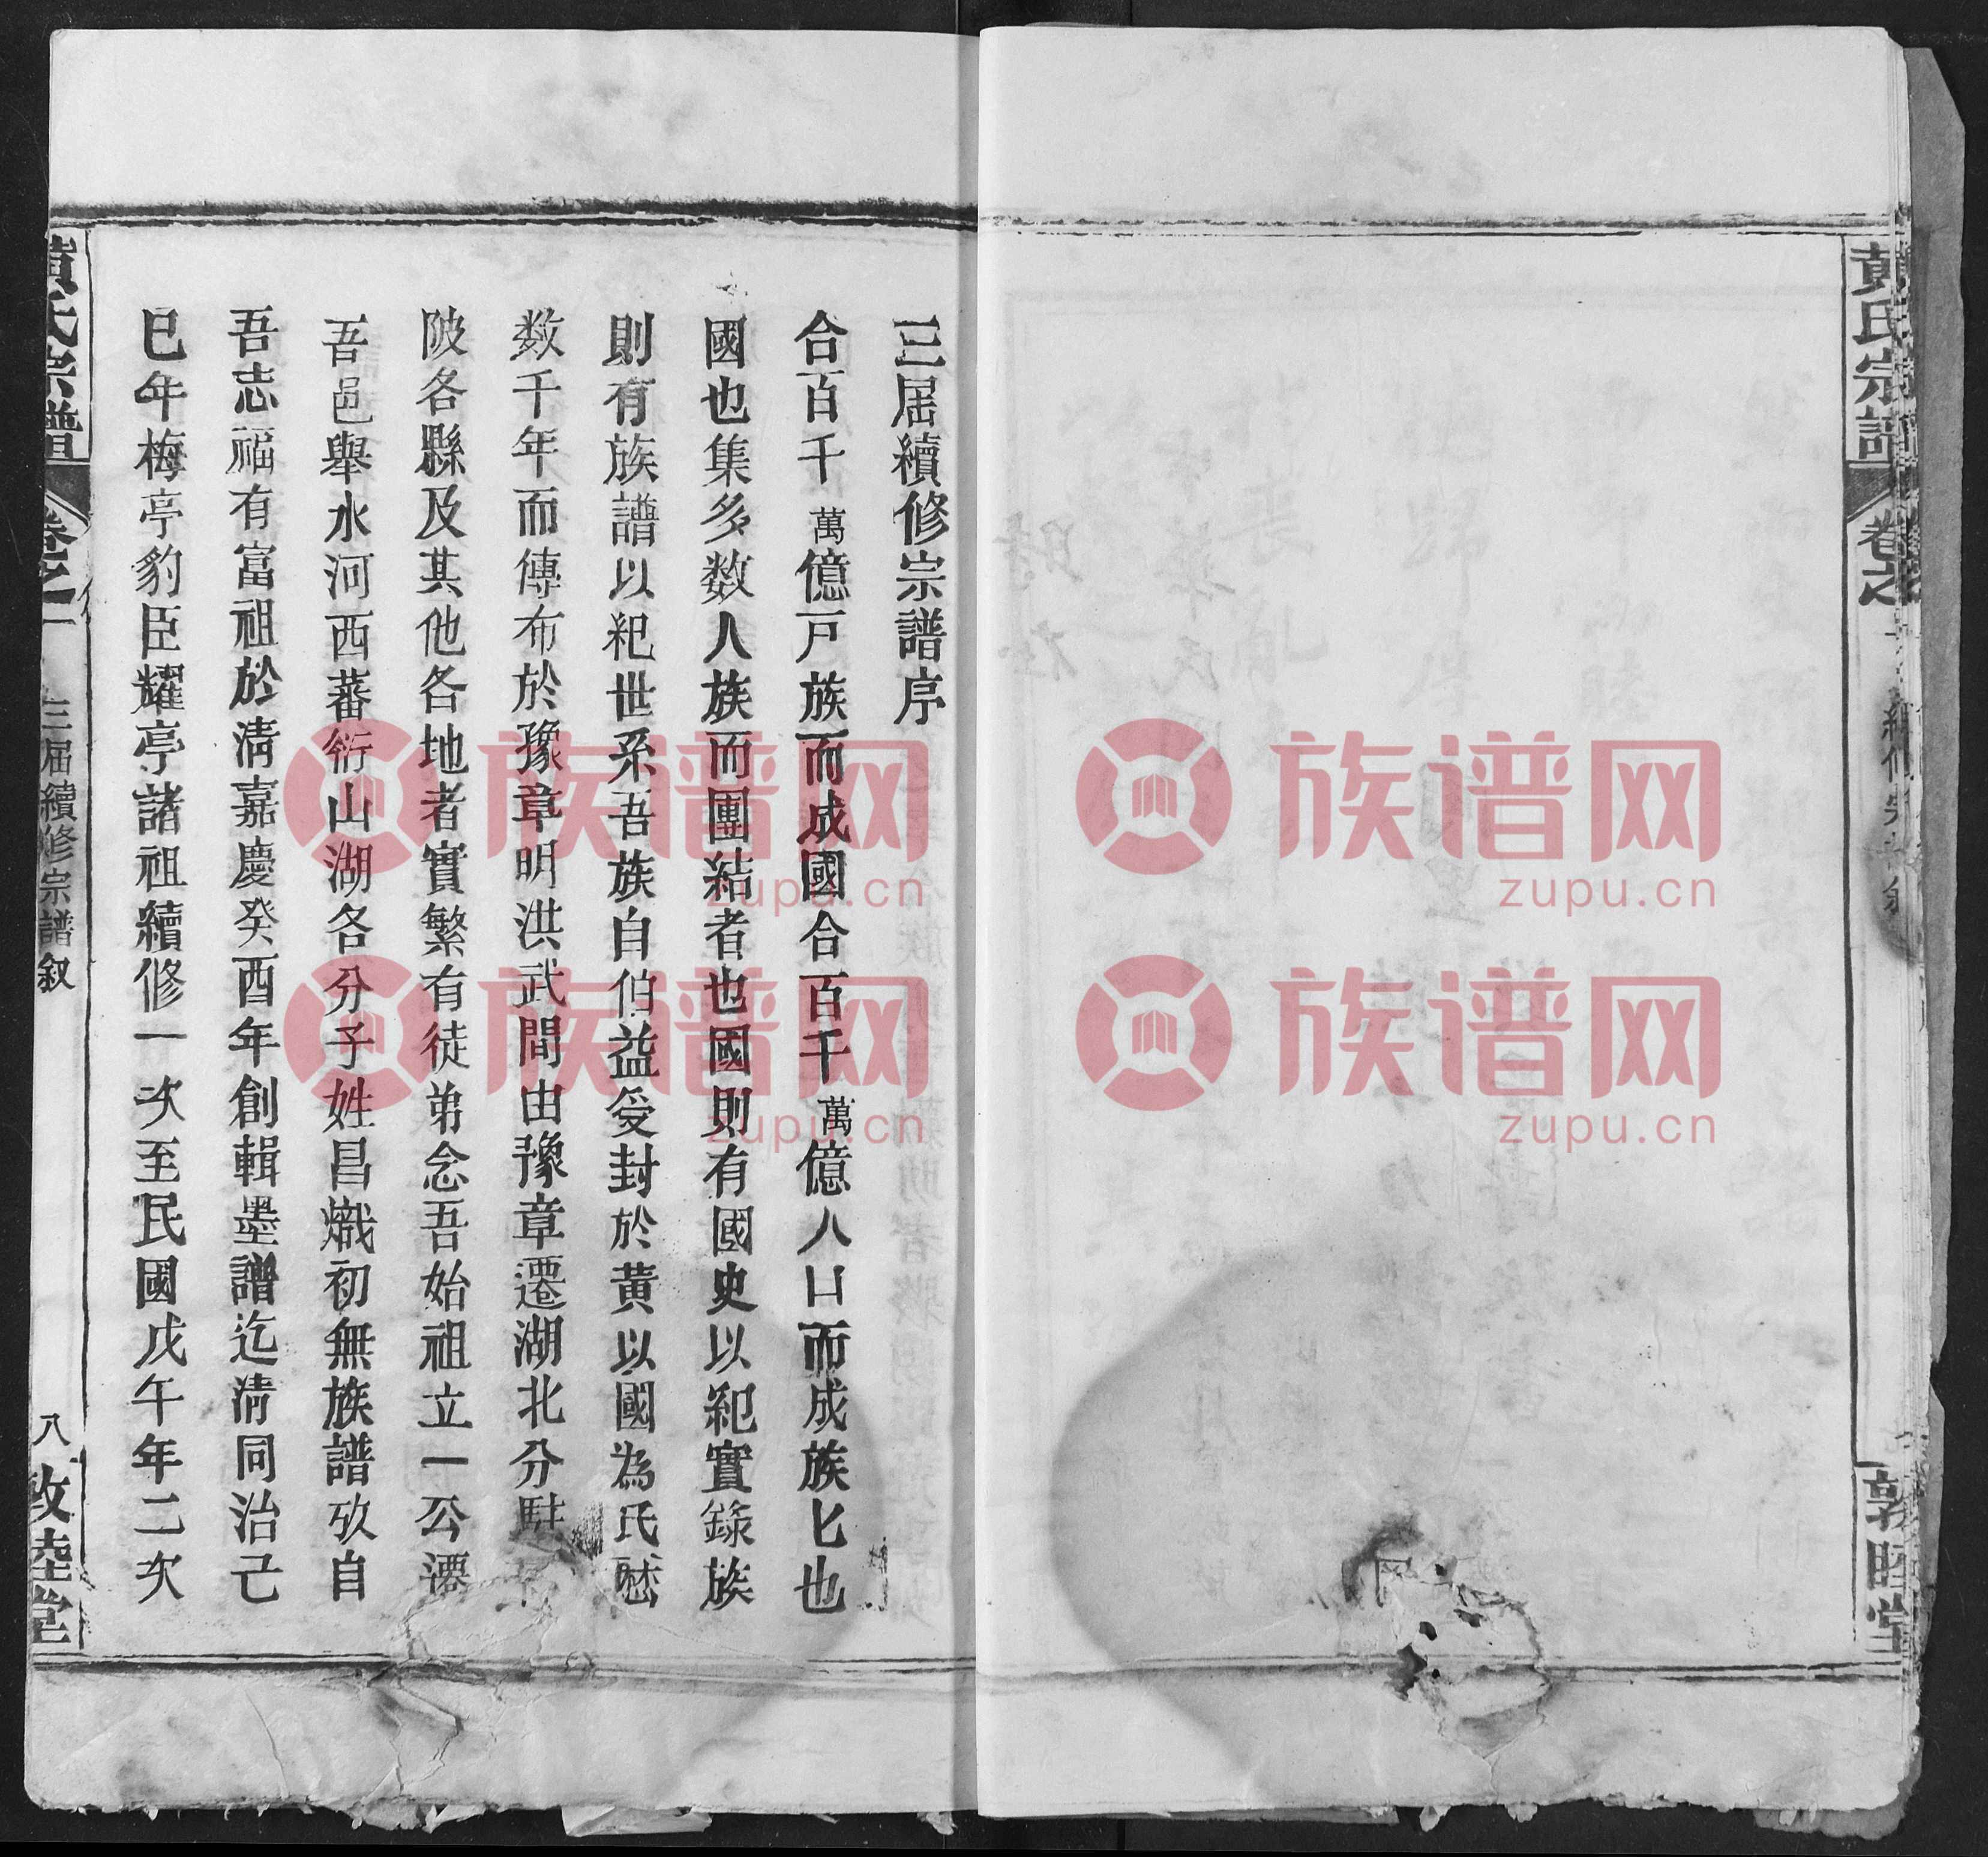 黄氏宗譜
卷之
敦睦堂
三屆續修宗譜序
合百千萬億戸族而成國合百千萬億人口而成族匕也
國也集多数人族而團結者也國則有國史以紀實錄族
則有族譜以紀世系吾族自伯益受封於黄以國為氏嵇
数千年而傳布於豫章明洪武間由豫章遷湖北分駐
陂各縣及其他各地者實繁有徒弟念吾始祖立一公遷
吾邑舉水河西蕃衍山湖各分子姓昌熾初無族譜攷自
吾志福有富祖於淸嘉慶癸酉年創輯墨譜迄淸同治己
巳年梅亭豹臣耀亭諸祖續修一次至民國戊午年二次
黄氏宗譜
卷之一
三屆續修宗譜叙
八
敦睦堂
族谱网
zupu.cn
族谱网
zupu.cn
族谱网
zupu.cn
族谱网
zupu.cn